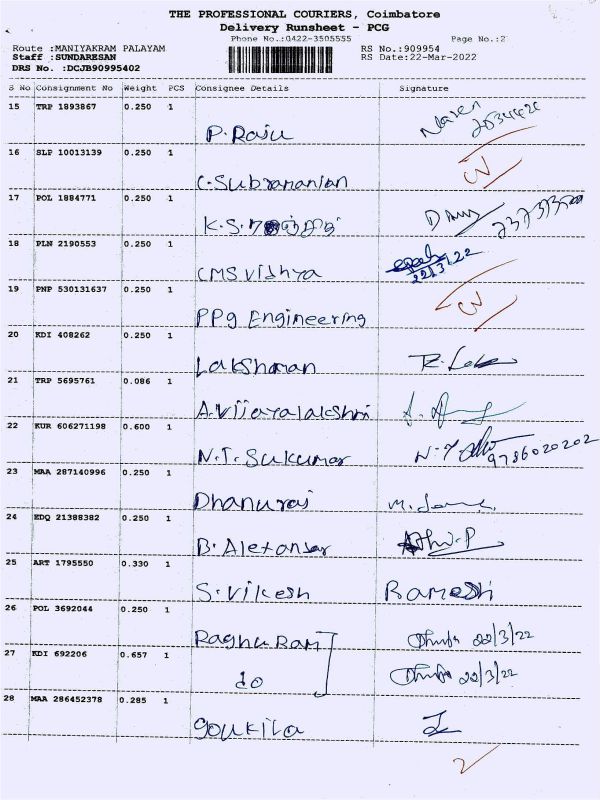 THE PROFESSIONAL COURIERS, Coimbatore
Delivery Runsheet - PCG
Phone No.:0422-3505555 Page No.:2
Route :MANIYAKRAM PALAYAM RS No.:909954
Staff :SUNDARESAN RS Date:22-Mar-2022
DRS No. :DCJB90995402
S No Consignment No Weight PCS Consignee Details Signature
15 TRP 1893867 0.250 1
P. Raju Naren
16 SLP 10013139 0.250 1
C. Subramanian
17 POL 1884771 0.250 1
K.S.
18 PLN 2190553 0.250 1
CMS Vidhya 22/3/22
19 PNP 530131637 0.250 1
PPg Engineering
20 KDI 408262 0.250 1
Lakshman
21 TRP 5695761 0.086 1
A. Vijayalakshmi
22 KUR 606271198 0.600 1
N.T. Sukumar 9786020202
23 MAA 287140996 0.250 1
Dhanuraj
24 EDQ 21388382 0.250 1
B. Alexandar
25 ART 1795550 0.330 1
S. Vikesh Ramesh
26 POL 3692044 0.250 1
Raghu Ram 22/3/22
27 KDI 692206 0.657 1
do 22/3/22
28 MAA 286452378 0.285 1
goukila